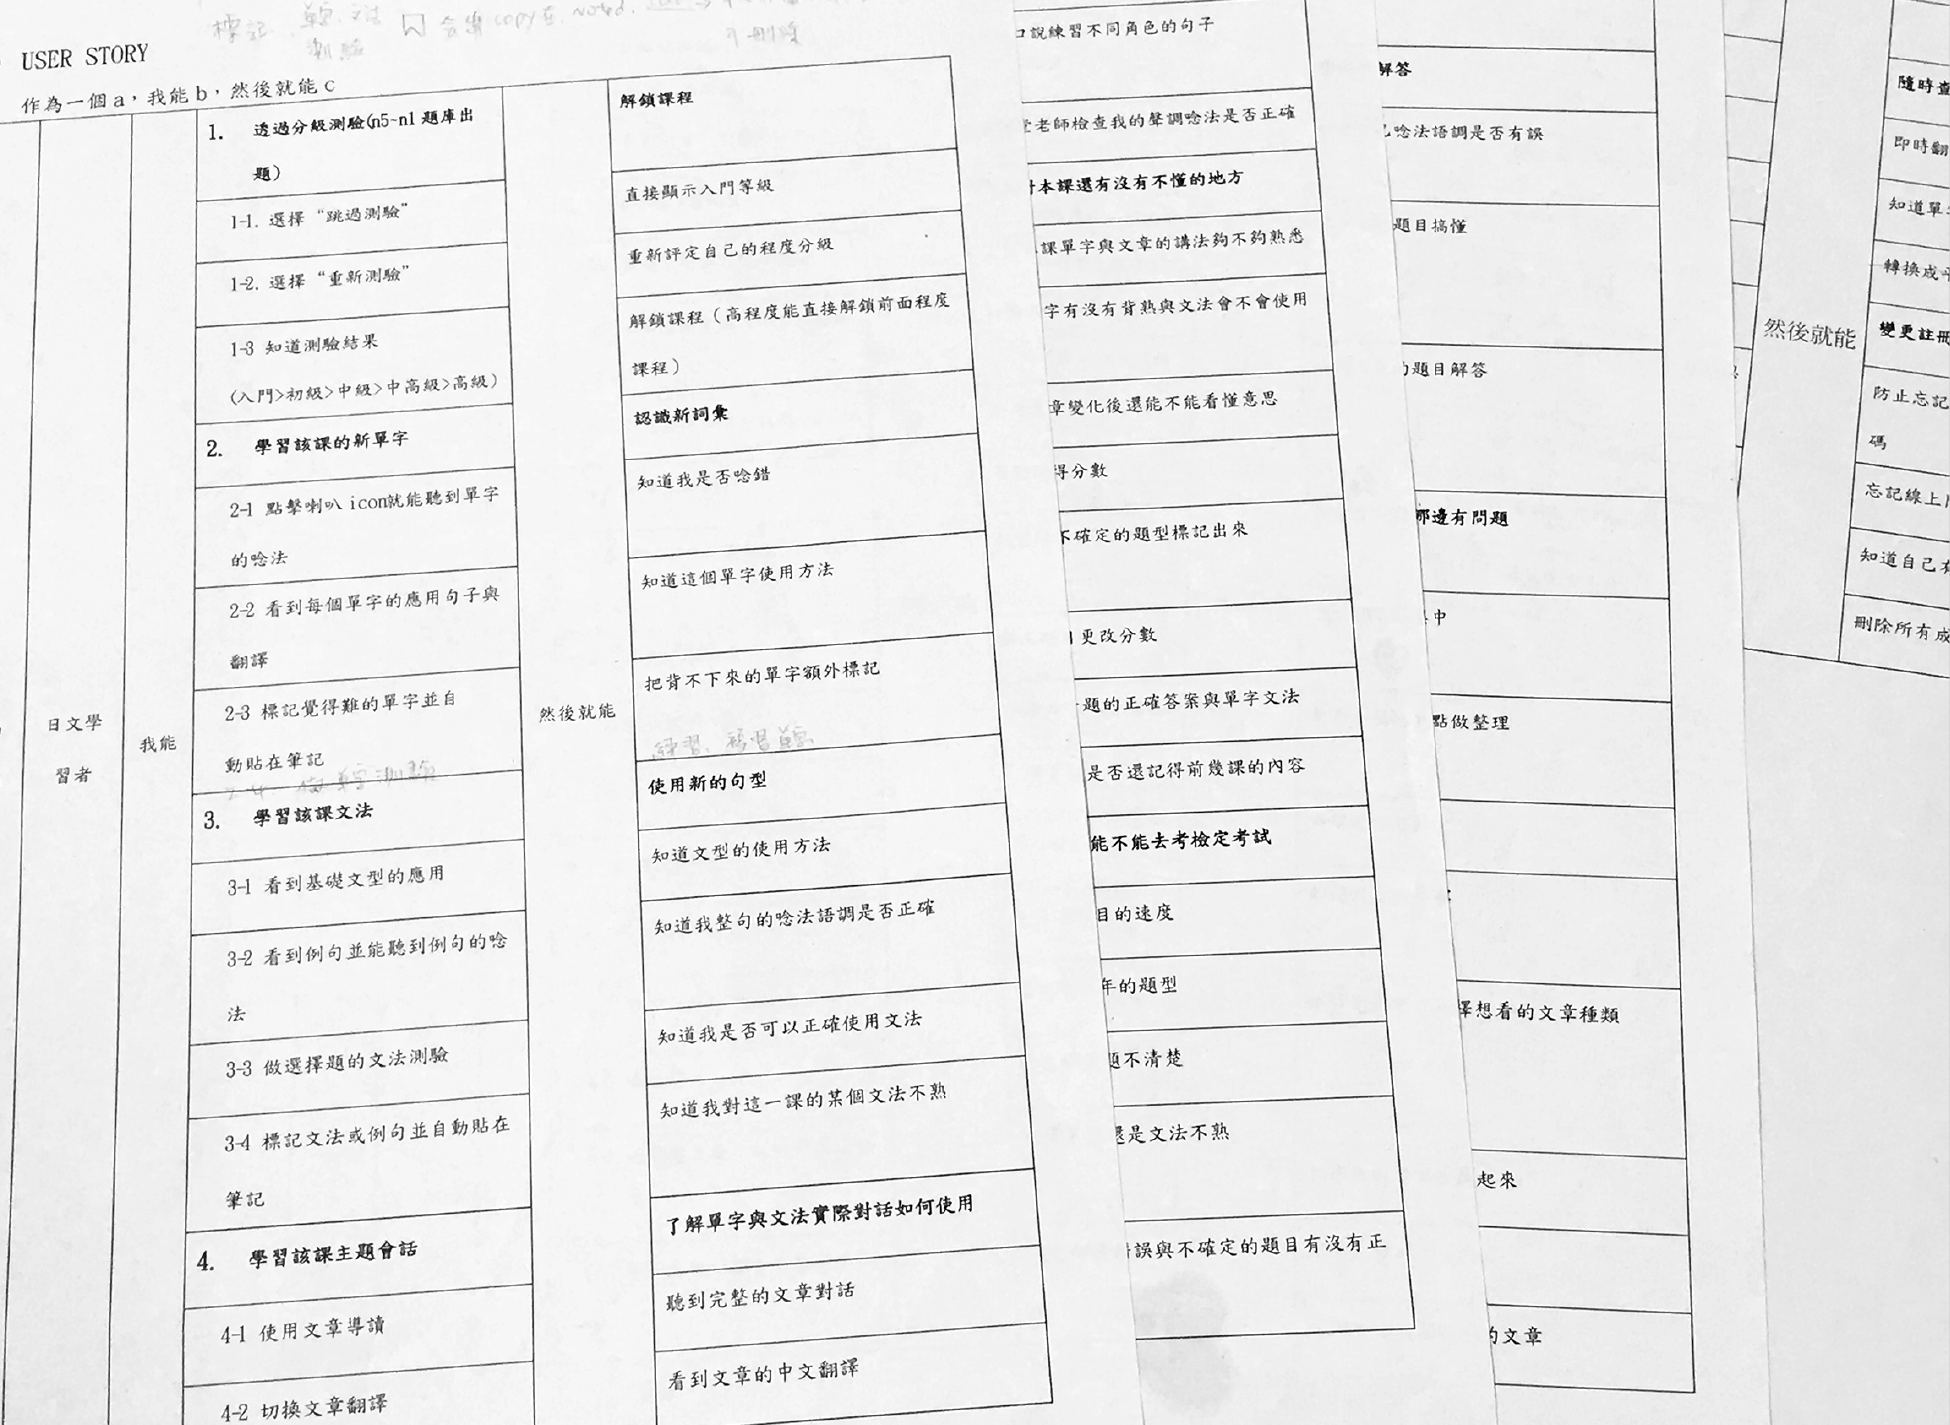 標記
USER STORY
作為一個 a，我能 b，然後就能 c
日文學
習者
我能
1. 透過分級測驗(n5~n1 題庫出
題)
1-1. 選擇“跳過測驗”
1-2. 選擇“重新測驗”
1-3 知道測驗結果
(入門>初級>中級>中高級>高級)
2. 學習該課的新單字
2-1 點擊喇叭 icon就能聽到單字
的唸法
2-2 看到每個單字的應用句子與
翻譯
2-3 標記覺得難的單字並自
動貼在筆記
3. 學習該課文法
3-1 看到基礎文型的應用
3-2 看到例句並能聽到例句的唸
法
3-3 做選擇題的文法測驗
3-4 標記文法或例句並自動貼在
筆記
4. 學習該課主題會話
4-1 使用文章導讀
4-2 切換文章翻譯
然後就能
解鎖課程
直接顯示入門等級
重新評定自己的程度分級
解鎖課程（高程度能直接解鎖前面程度
課程）
認識新詞彙
知道我是否唸錯
知道這個單字使用方法
把背不下來的單字額外標記
使用新的句型
知道文型的使用方法
知道我整句的唸法語調是否正確
知道我是否可以正確使用文法
知道我對這一課的某個文法不熟
了解單字與文法實際對話如何使用
聽到完整的文章對話
看到文章的中文翻譯
口說練習不同角色的句子
老師檢查我的聲調唸法是否正確
本課還有沒有不懂的地方
課單字與文章的講法夠不夠熟悉
字有沒有背熟與文法會不會使用
章變化後還能不能看懂意思
得分數
不確定的題型標記出來
更改分數
題的正確答案與單字文法
是否還記得前幾課的內容
能不能去考檢定考試
目的速度
年的題型
題不清楚
還是文法不熟
誤與不確定的題目有沒有正
解答
唸法語調是否有誤
題目搞懂
的題目解答
那邊有問題
中
點做整理
擇想看的文章種類
起來
的文章
然後就能
隨時查
即時翻
知道單
轉換成
變更註冊
防止忘記
碼
忘記線上
知道自己
刪除所有成